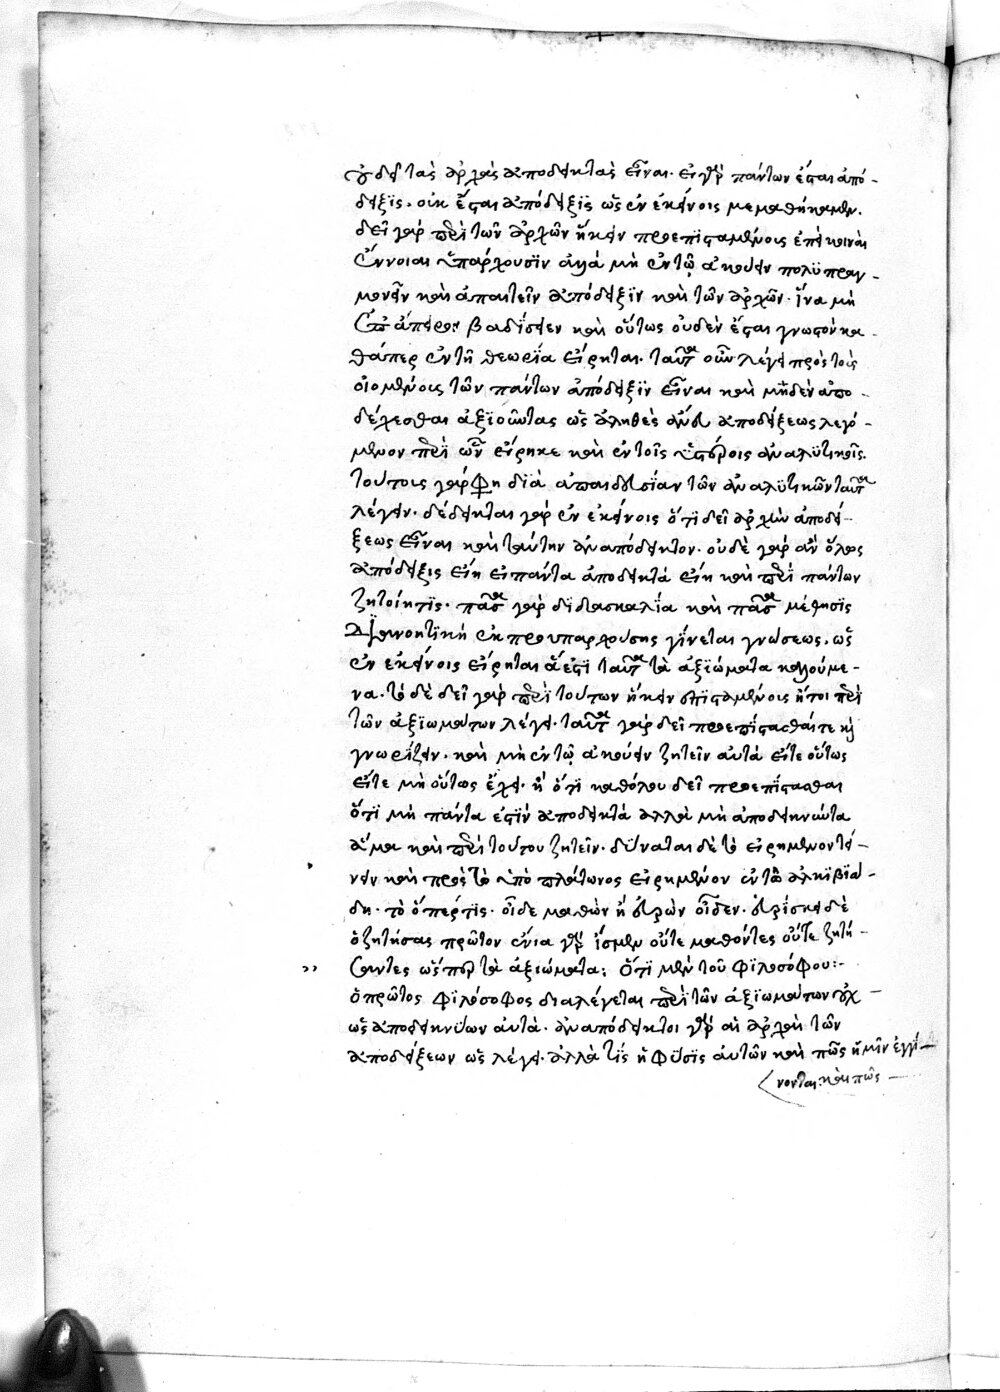 οὐ δεῖ τὰς ἀρχὰς ἀποδεικτὰς εἶναι· εἰ γὰρ πάντων ἔσται ἀπό-
δειξις· οὐκ ἔσται ἀπόδειξις ὡς ἐν ἐκείνοις μεμαθήκαμεν.
δεῖ γὰρ περὶ τῶν ἀρχῶν ἥκειν προεπισταμένοις ἐπεὶ κοιναὶ
ἔννοιαι ὑπάρχουσιν ἀλλὰ μὴ ἐν τῷ ἀκούειν πολυπραγ-
μονεῖν καὶ ἀπαιτεῖν ἀπόδειξιν καὶ τῶν ἀρχῶν· ἵνα μὴ
ἐπ' ἄπειρον βαδίσειεν καὶ οὕτως οὐδὲν ἔσται γνωστὸν κα-
θάπερ ἐν τῇ θεωρία εἴρηται· ταῦτα οὖν λέγει πρὸς τοὺς
οἰομένους τῶν πάντων ἀπόδειξιν εἶναι καὶ μηδὲν ἀπο-
δέχεσθαι ἀξιοῦντας ὡς ἀληθὲς ἄνευ ἀποδείξεως λεγό-
μενον περὶ ὧν εἴρηκε καὶ ἐν τοῖς ὑστέροις ἀναλυτικοῖς.
τούτοις γάρ φη διὰ ἀπαιδευσίαν τῶν ἀναλυτικῶν ταῦτα
λέγειν· δέδεικται γὰρ ἐν ἐκείνοις ὅτι δεῖ ἀρχὴν ἀποδεί-
ξεως εἶναι καὶ ταύτην ἀναπόδεικτον· οὐδὲ γὰρ ἂν ὅλως
ἀπόδειξις εἴη εἰ πάντα ἀποδεικτά εἴη καὶ περὶ πάντων
ζητοίη τις· πᾶσα γὰρ διδασκαλία καὶ πᾶσα μάθησις
διανοητικὴ ἐκ προυπαρχούσης γίνεται γνώσεως· ὡς
ἐν ἐκείνοις εἴρηται ἅ ἐστι ταῦτα τὰ ἀξιώματα καλούμε-
να· τὸ δὲ δεῖ γὰρ περὶ τούτων ἥκειν ἐπισταμένοις ἤτοι περὶ
τῶν ἀξιωμάτων λέγει· ταῦτα γὰρ δεῖ προεπίστασθαί τε καὶ
γνωρίζειν· καὶ μὴ ἐν τῷ ἀκούειν ζητεῖν αὐτά εἴτε οὕτως
εἴτε μὴ οὕτως ἔχει· ἢ ὅτι καθόλου δεῖ προεπίστασθαι
ὅτι μὴ πάντα ἐστὶν ἀποδεικτά ἀλλὰ μὴ ἀποδεικνύντα
ἅμα καὶ περὶ τούτου ζητεῖν· δύναται δὲ τὸ εἰρημένον τεί-
νειν καὶ πρὸς τὸ ὑπὸ πλάτωνος εἰρημένον ἐν τῶ ἀλκιβιά-
δη· τὸ ὅπερ τις· οἶδε μαθὼν ἢ εὑρὼν οἶδεν· εὑρίσκει δὲ
ὁ ζητήσας πρῶτον ἔνια γὰρ ἴσμεν οὔτε μαθόντες οὔτε ζητή-
σαντες ὥσπερ τὰ ἀξιώματα: Ὅτι μὲν τοῦ φιλοσόφου:-
ὁ πρῶτος φιλόσοφος διαλέγεται περὶ τῶν ἀξιωμάτων οὐχ
ὡς ἀποδεικνύων αὐτά· ἀναπόδεικτοι γὰρ αἱ ἀρχαὶ τῶν
ἀποδείξεων ὡς λέγει· ἀλλὰ τίς ἡ φύσις αὐτῶν καὶ πῶς ἡμῖν ἐγγί-
νονται· καὶ πῶς